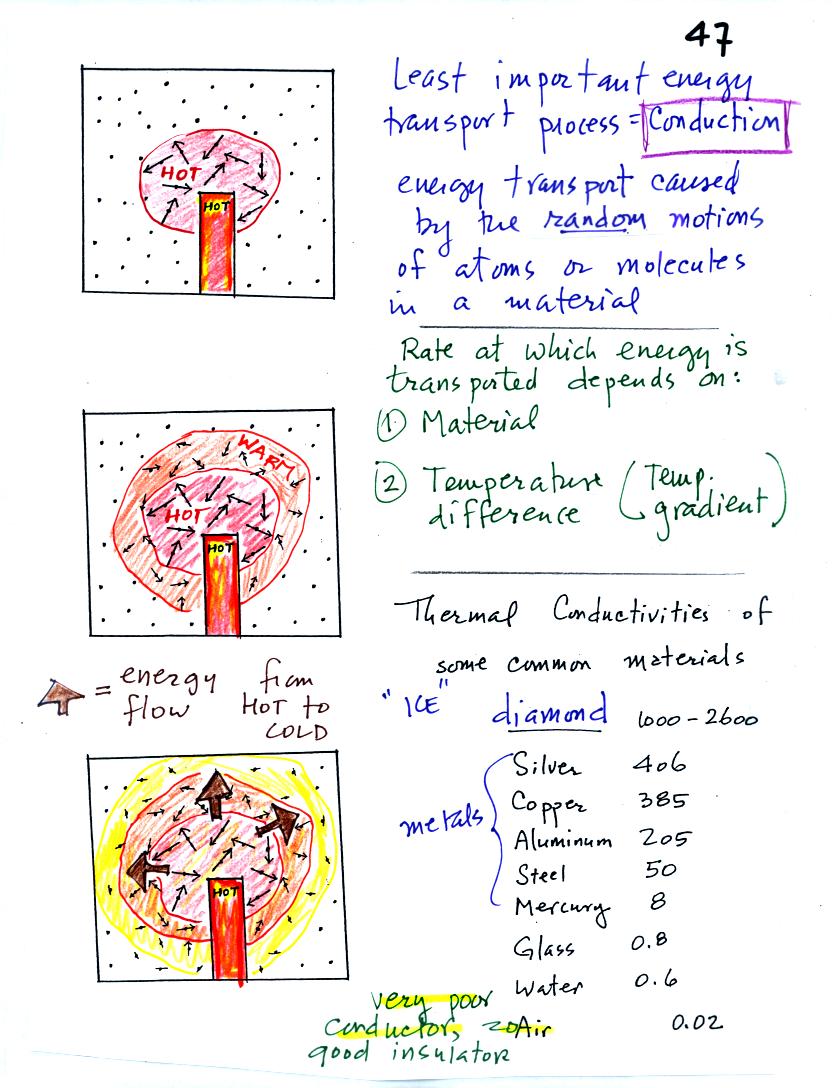 47
Least important energy
transport process = Conduction
energy transport caused
by the random motions
of atoms or molecules
in a material
Rate at which energy is
transported depends on:
① Material
② Temperature (Temp.
difference gradient)
HOT
HOT
WARM
HOT
HOT
= energy from
flow HOT to
COLD
HOT
Thermal Conductivities of
some common materials
"ICE" diamond 1000-2600
metals
Silver 406
Copper 385
Aluminum 205
Steel 50
Mercury 8
Glass 0.8
Water 0.6
Air 0.02
very poor
conductor,
good insulator